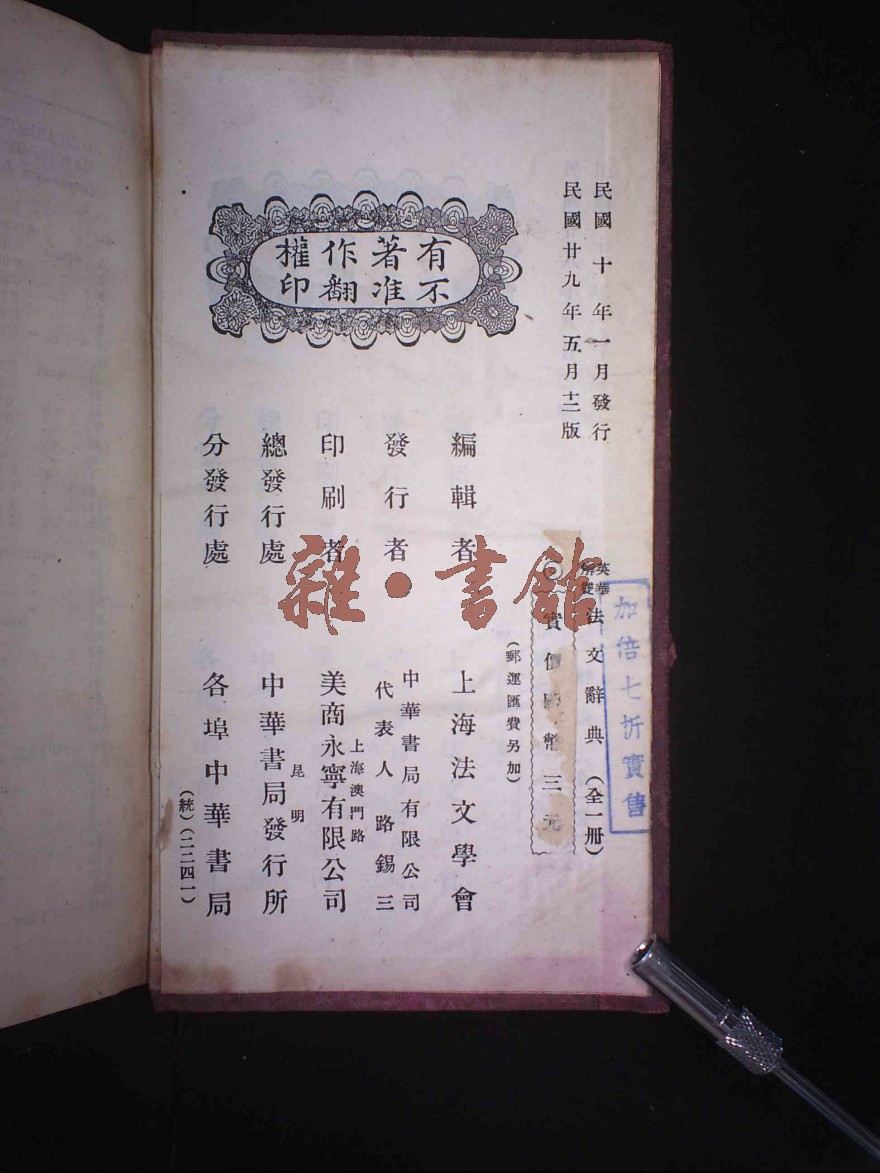 民國十年一月發行
民國廿九年五月十二版
有著作權
不准翻印
英華
解雙
法文辭典(全一册)
加倍七折實售
實價國幣三元
(郵運匯費另加)
編輯者 上海法文學會
發行者 中華書局有限公司
代表人 路錫三
印刷者 上海澳門路
美商永寧有限公司
總發行處 昆明
中華書局發行所
分發行處 各埠中華書局
(統)(二二四一)
雜·書館